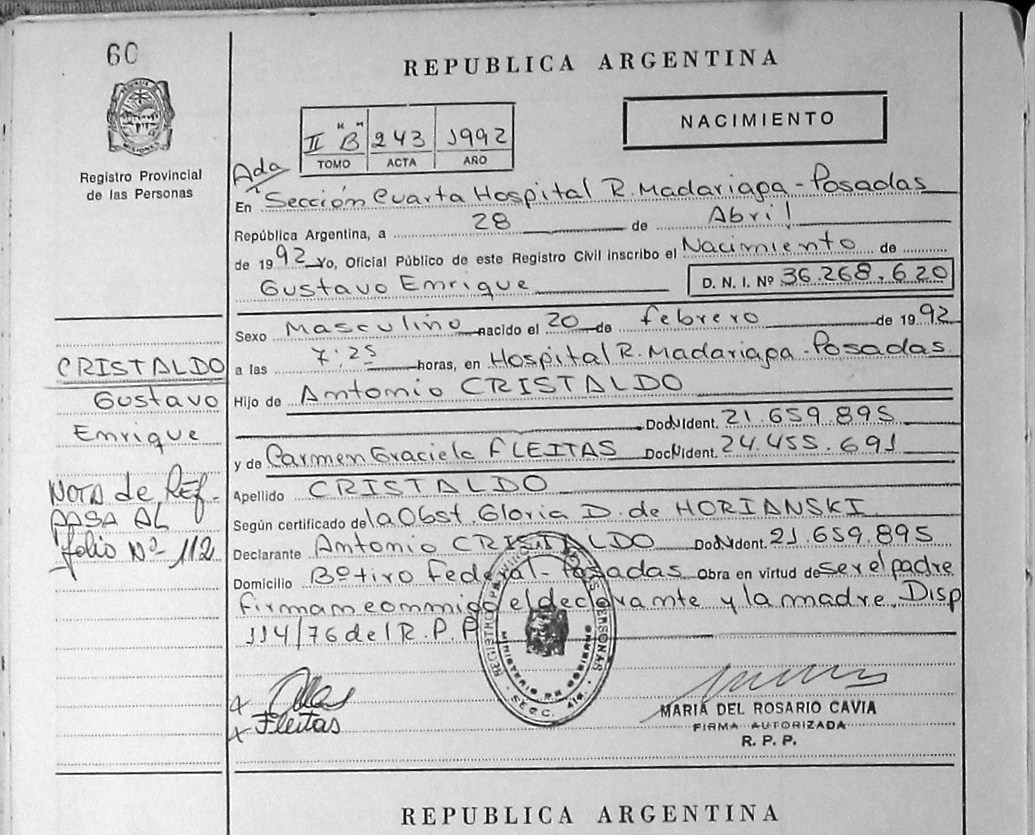 60
REPUBLICA ARGENTINA
NACIMIENTO
II "B" 243 1992
TOMO ACTA AÑO
Registro Provincial
de las Personas
Ada
En Sección Cuarta Hospital R. Madariaga - Posadas
República Argentina, a 28 de Abril
de 1992 Yo, Oficial Público de este Registro Civil inscribo el Nacimiento de
Gustavo Enrique D. N. I. Nº 36.268.620
Sexo Masculino nacido el 20 de febrero de 1992
a las 7:25 horas, en Hospital R. Madariaga - Posadas
Hijo de Antonio CRISTALDO
Doc. Ident. 21.659.895
y de Carmen Graciela FLEITAS Doc. Ident. 24.455.691
Apellido CRISTALDO
Según certificado de la Obst. Gloria D. de HORIANSKI
Declarante Antonio CRISTALDO Doc. Ident. 21.659.895
Domicilio Bº tiro Federal - Posadas Obra en virtud de ser el padre
firman conmigo el declarante y la madre. Disp
114/76 del R. P. P
CRISTALDO
Gustavo
Enrique
NOTA de REF.
PASA AL
folio Nº 112
REGISTRO PROVINCIAL DE LAS PERSONAS
MINISTERIO DE GOBIERNO
SECC. 4ta.
Fleitas
MARIA DEL ROSARIO CAVIA
FIRMA AUTORIZADA
R. P. P.
REPUBLICA ARGENTINA